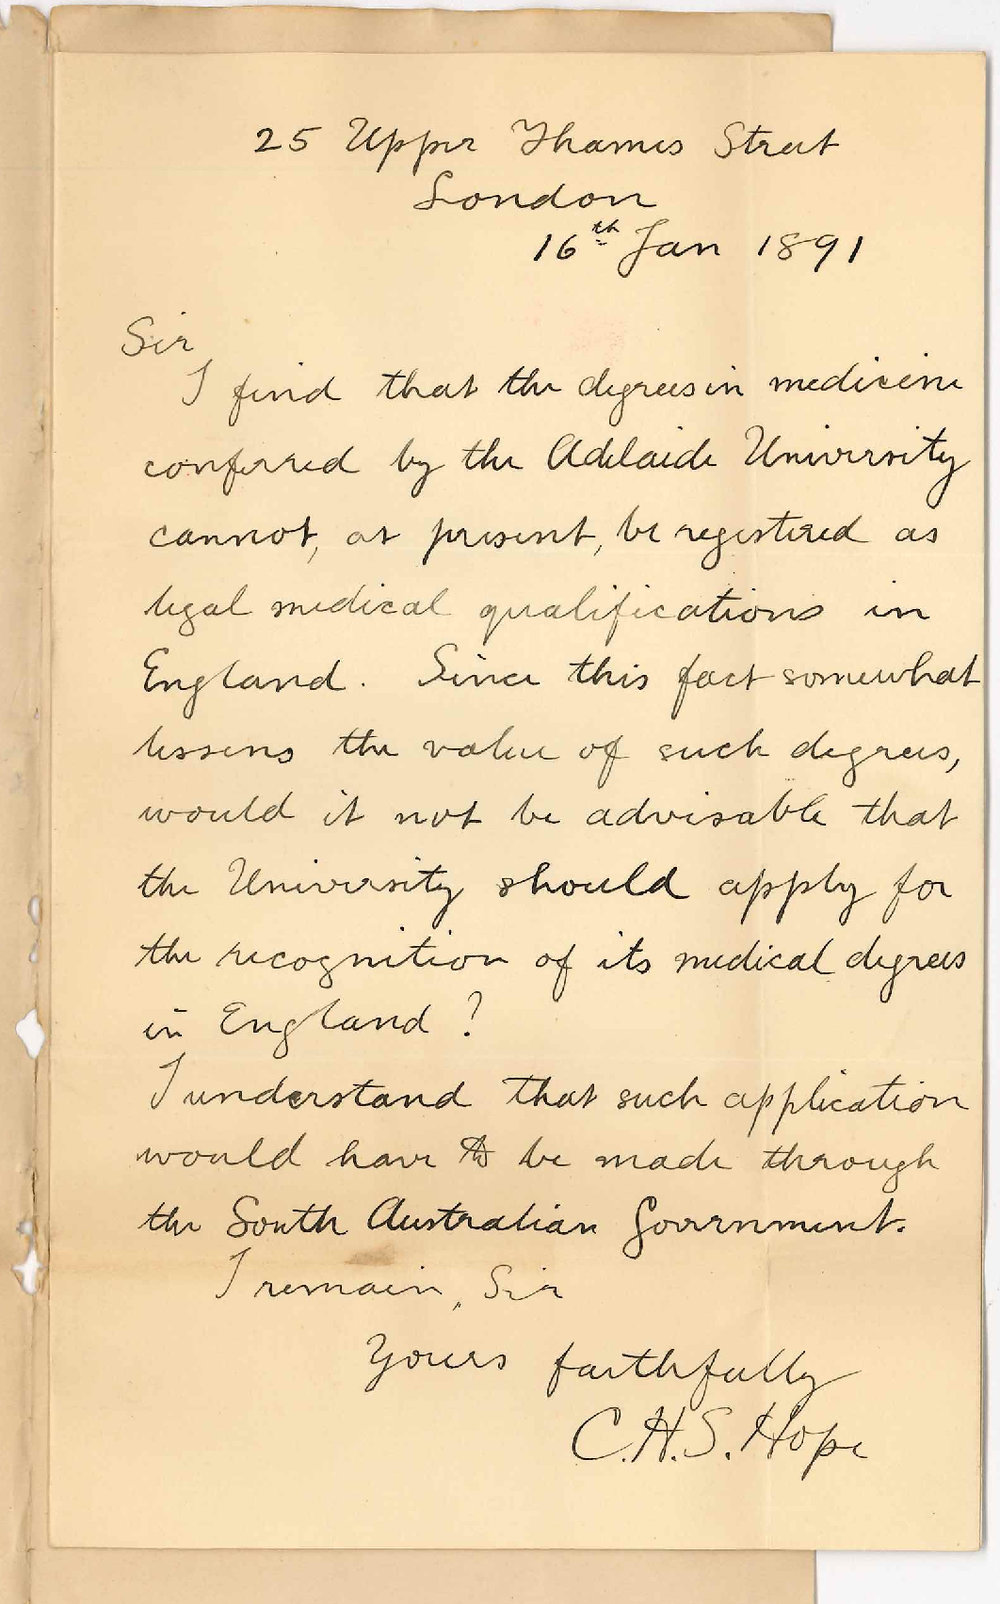 25 Upper Thames Street
London
16th Jan 1891
Sir
I find that the degrees in medicine
conferred by the Adelaide University
cannot, at present, be registered as
legal medical qualifications in
England. Since this fact somewhat
lessens the value of such degrees,
would it not be advisable that
the University should apply for
the recognition of its medical degrees
in England?
I understand that such application
would have to be made through
the South Australian Government.
I remain, Sir
Yours faithfully
C.H.S. Hope